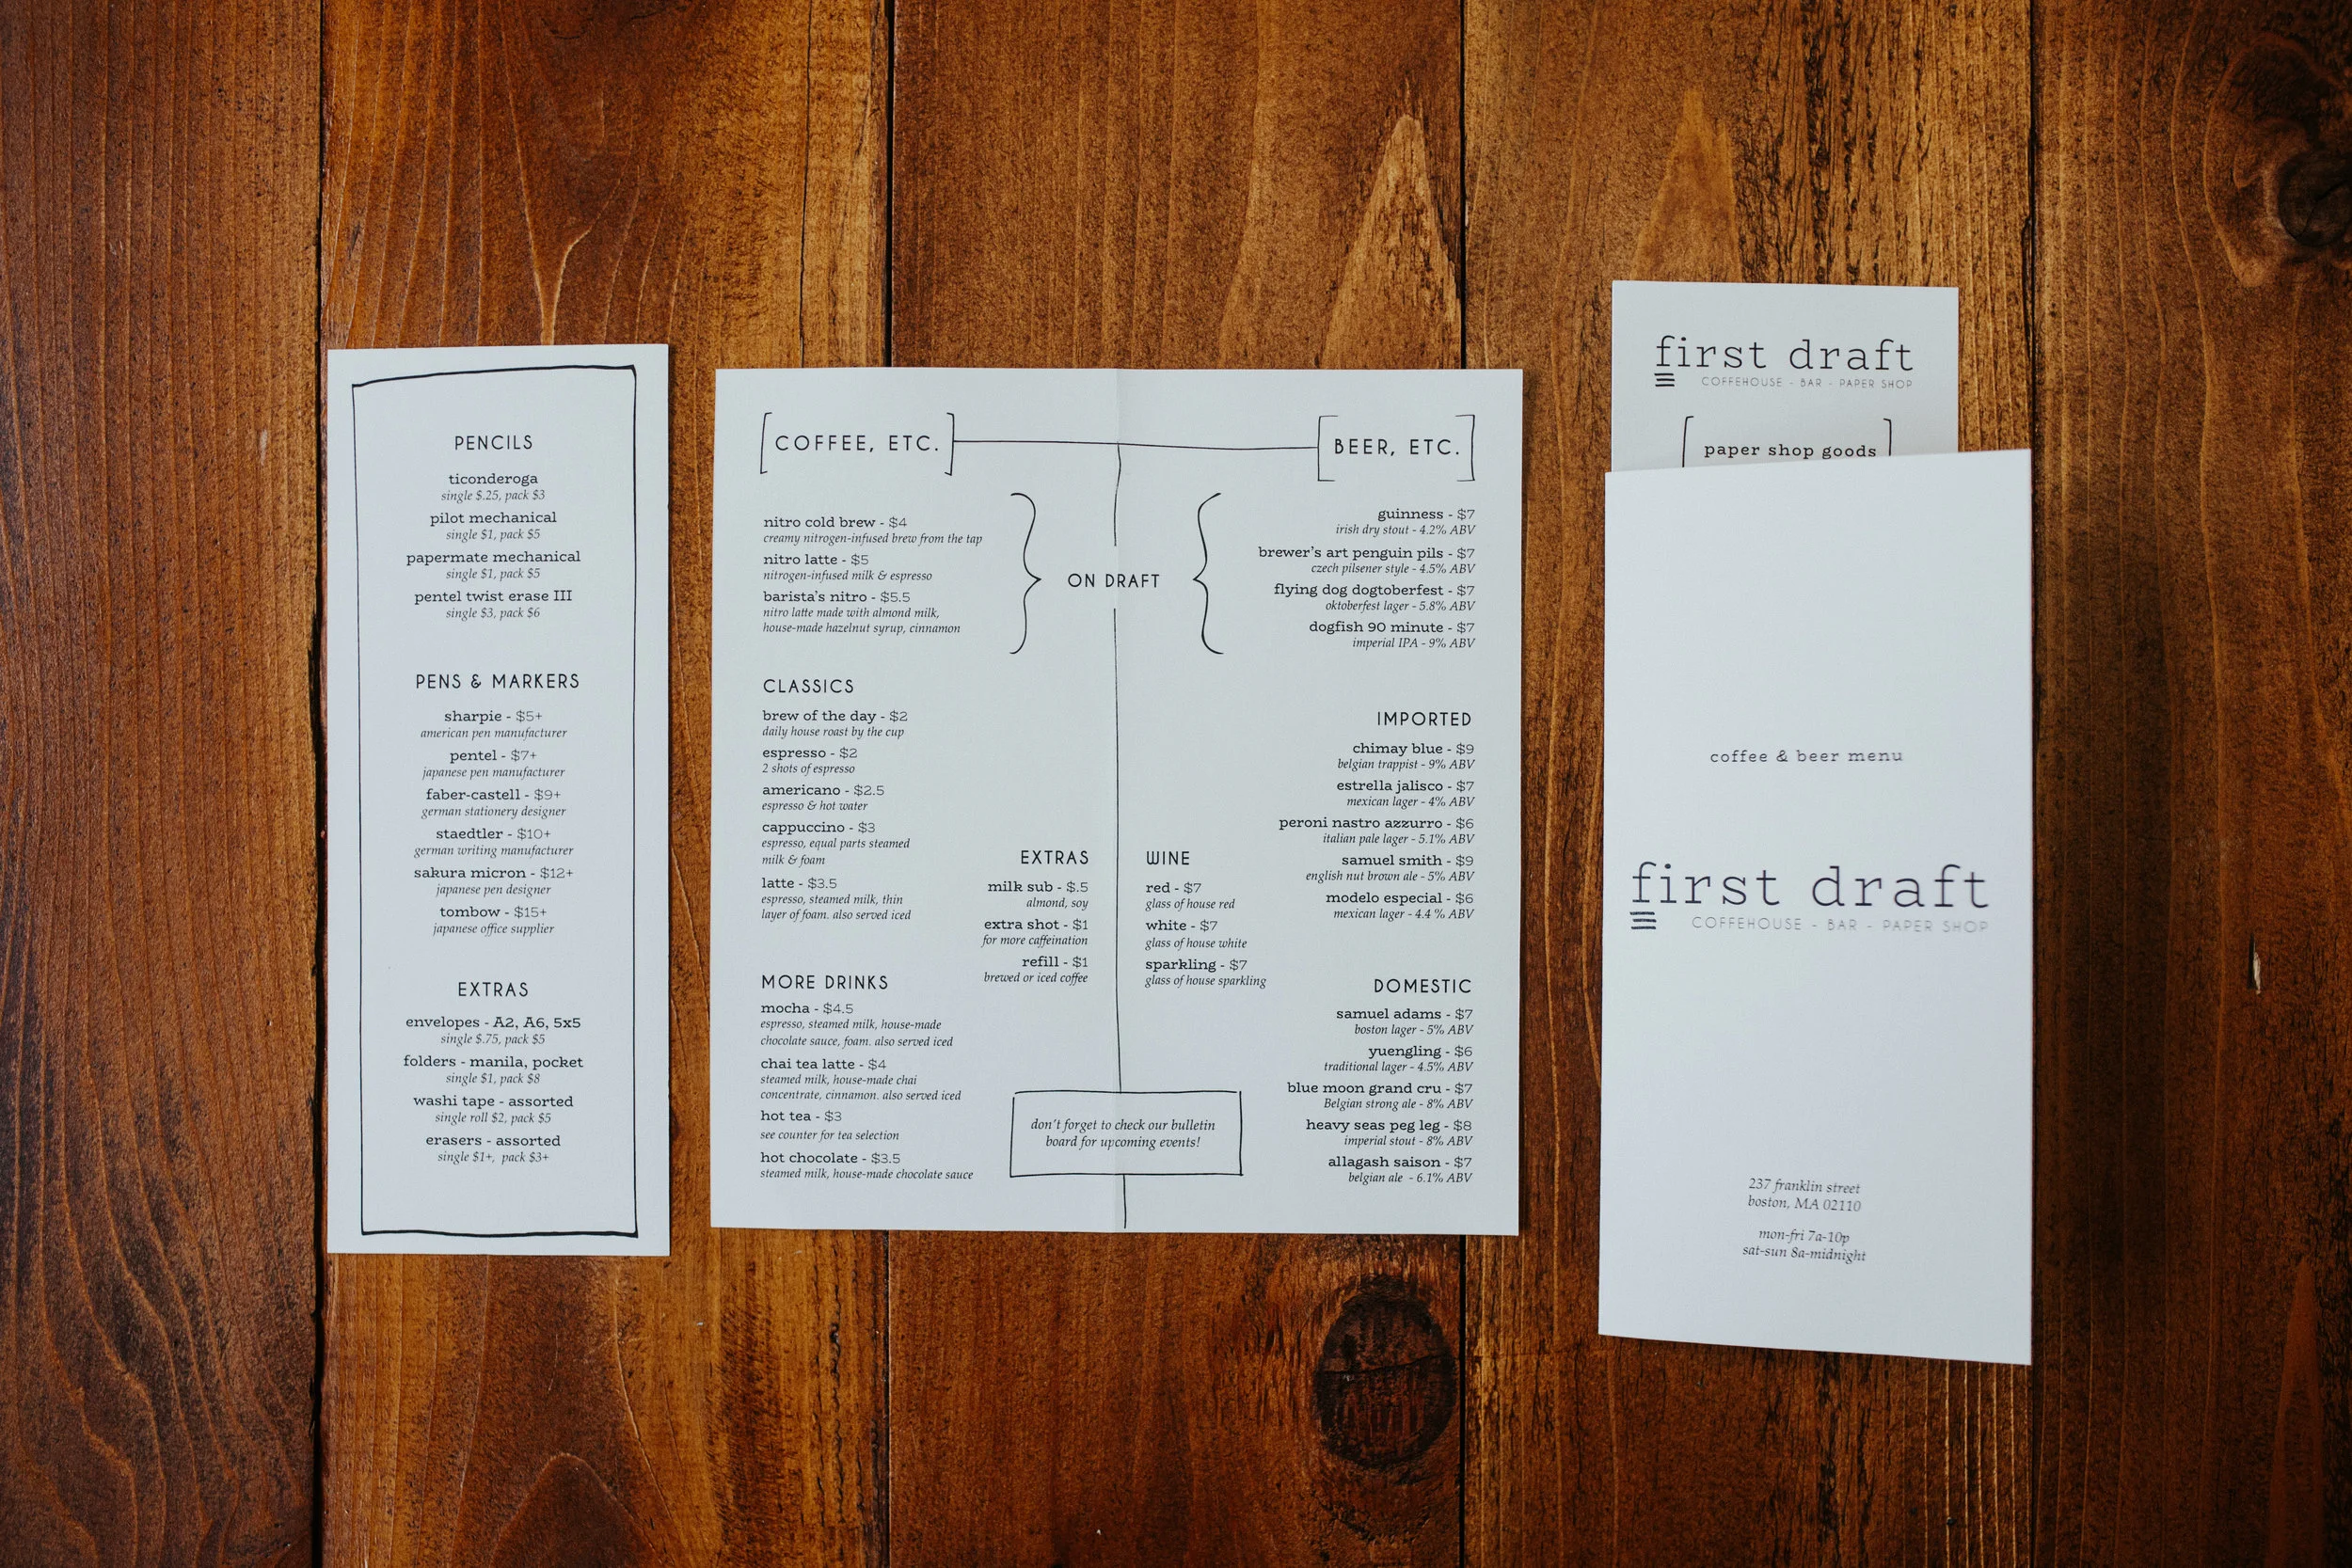 PENCILS
ticonderoga
single $.25, pack $3
pilot mechanical
single $1, pack $5
papermate mechanical
single $1, pack $5
pentel twist erase III
single $3, pack $6
PENS & MARKERS
sharpie - $5+
american pen manufacturer
pentel - $7+
japanese pen manufacturer
faber-castell - $9+
german stationery designer
staedtler - $10+
german writing manufacturer
sakura micron - $12+
japanese pen designer
tombow - $15+
japanese office supplier
EXTRAS
envelopes - A2, A6, 5x5
single $.75, pack $5
folders - manila, pocket
single $1, pack $8
washi tape - assorted
single roll $2, pack $5
erasers - assorted
single $1+, pack $3+
[COFFEE, ETC.]
nitro cold brew - $4
creamy nitrogen-infused brew from the tap
nitro latte - $5
nitrogen-infused milk & espresso
barista's nitro - $5.5
nitro latte made with almond milk,
house-made hazelnut syrup, cinnamon
CLASSICS
brew of the day - $2
daily house roast by the cup
espresso - $2
2 shots of espresso
americano - $2.5
espresso & hot water
cappuccino - $3
espresso, equal parts steamed
milk & foam
latte - $3.5
espresso, steamed milk, thin
layer of foam. also served iced
MORE DRINKS
mocha - $4.5
espresso, steamed milk, house-made
chocolate sauce, foam. also served iced
chai tea latte - $4
steamed milk, house-made chai
concentrate, cinnamon. also served iced
hot tea - $3
see counter for tea selection
hot chocolate - $3.5
steamed milk, house-made chocolate sauce
EXTRAS
milk sub - $.5
almond, soy
extra shot - $1
for more caffeination
refill - $1
brewed or iced coffee
} ON DRAFT {
[BEER, ETC.]
guinness - $7
irish dry stout - 4.2% ABV
brewer's art penguin pils - $7
czech pilsener style - 4.5% ABV
flying dog dogtoberfest - $7
oktoberfest lager - 5.8% ABV
dogfish 90 minute - $7
imperial IPA - 9% ABV
IMPORTED
chimay blue - $9
belgian trappist - 9% ABV
estrella jalisco - $7
mexican lager - 4% ABV
peroni nastro azzurro - $6
italian pale lager - 5.1% ABV
samuel smith - $9
english nut brown ale - 5% ABV
modelo especial - $6
mexican lager - 4.4 % ABV
WINE
red - $7
glass of house red
white - $7
glass of house white
sparkling - $7
glass of house sparkling
DOMESTIC
samuel adams - $7
boston lager - 5% ABV
yuengling - $6
traditional lager - 4.5% ABV
blue moon grand cru - $7
Belgian strong ale - 8% ABV
heavy seas peg leg - $8
imperial stout - 8% ABV
allagash saison - $7
belgian ale - 6.1% ABV
don't forget to check our bulletin
board for upcoming events!
first draft
COFFEHOUSE - BAR - PAPER SHOP
[paper shop goods]
coffee & beer menu
first draft
COFFEHOUSE - BAR - PAPER SHOP
237 franklin street
boston, MA 02110
mon-fri 7a-10p
sat-sun 8a-midnight